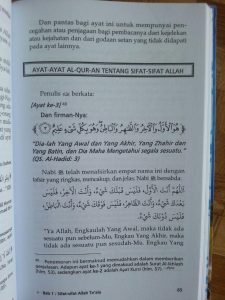 Dan pantas bagi ayat ini untuk mempunyai pen-
cegahan atau pencegahan bagi pembacanya dari kejelekan
atau kejahatan dan dari godaan setan yang tidak didapati
pada ayat lainnya.
AYAT-AYAT AL-QUR-AN TENTANG SIFAT-SIFAT ALLAH
Penulis berkata:
[Ayat ke-3]
Dan firman-Nya:
هُوَ الْأَوَّلُ وَالْآخِرُ وَالظَّاهِرُ وَالْبَاطِنُ وَهُوَ بِكُلِّ شَيْءٍ عَلِيمٌ
"Dia-lah Yang Awal dan Yang Akhir, Yang Zhahir dan
Yang Batin, dan Dia Maha Mengetahui segala sesuatu."
(QS. Al-Hadid: 3)
Nabi ﷺ telah menafsirkan empat nama ini dengan
tafsir yang ringkas, mencakup, dan jelas. Nabi ﷺ bersabda:
اَللَّهُمَّ أَنْتَ الْأَوَّلُ، فَلَيْسَ قَبْلَكَ شَيْءٌ، وَأَنْتَ الْآخِرُ، فَلَيْسَ
بَعْدَكَ شَيْءٌ، وَأَنْتَ الظَّاهِرُ، فَلَيْسَ فَوْقَكَ شَيْءٌ، وَأَنْتَ الْبَاطِنُ،
فَلَيْسَ دُوْنَكَ شَيْءٌ.
"Ya Allah, Engkaulah Yang Awal, maka tidak ada
sesuatu pun sebelum-Mu, Engkau Yang Akhir, maka
tidak ada sesuatu pun sesudah-Mu. Engkau Yang
Penomoran ini bermaksud memudahkan dalam memberikan
penjelasan. Adapun ayat ke-1 yang dimaksud adalah Surat Al-Ikhlash
(hlm. 53), sedangkan ayat ke-2 adalah Ayat Kursi (hlm. 57).
Bab 1 : Sifat-sifat Allah Ta'ala
65